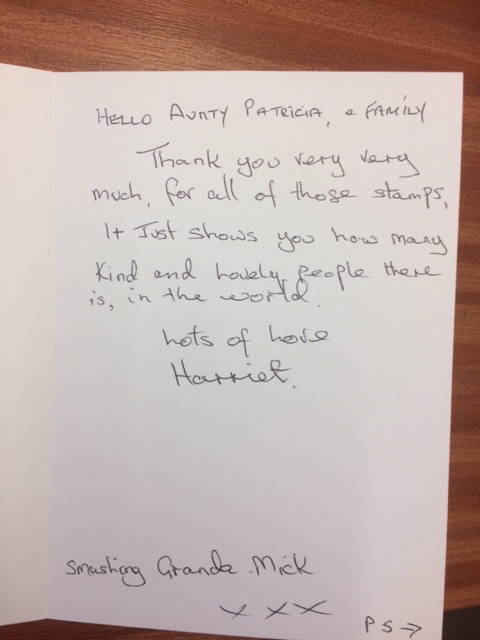 HELLO AUNTY PATRICIA, & FAMILY
Thank you very very
much, for all of those stamps,
It Just shows you how many
Kind and Lovely people there
is, in the world.
Lots of Love
Harriet.
Smashing Granda Mick
x x x
PS →